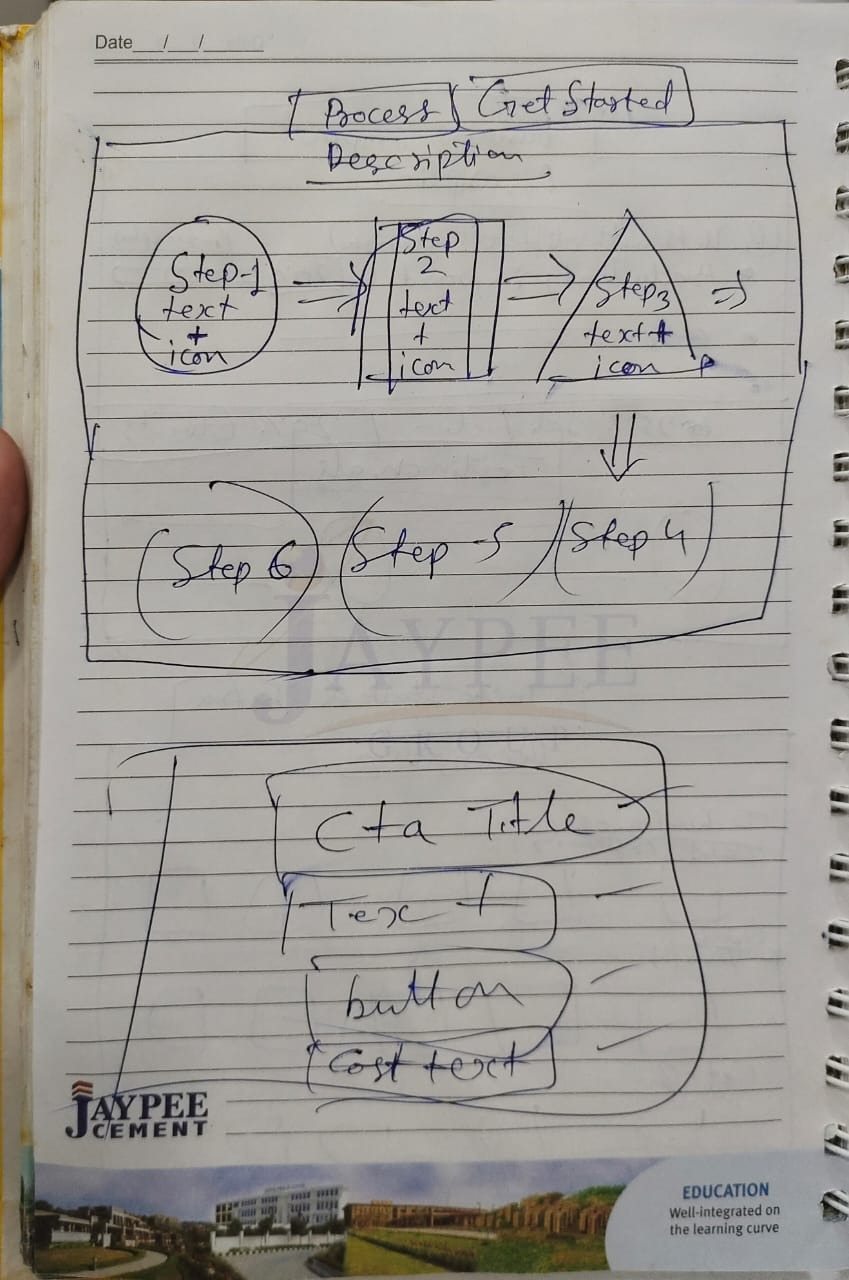 Date__/__/____
Process Get Started
Description
Step-1
text
+
icon
Step
2
text
+
icon
Step 3
text +
icon
Step 6 Step -5 Step 4
JAYPEE
GROUP
Cta Title
Text
button
Cost text
JAYPEE
CEMENT
EDUCATION
Well-integrated on
the learning curve